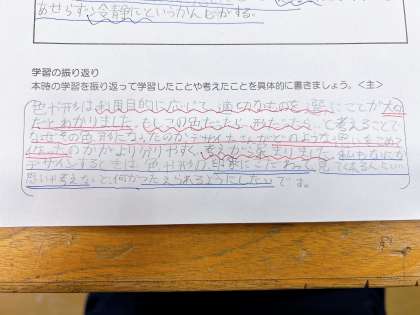 あせらずに冷静にというかんじがする。
学習の振り返り
本時の学習を振り返って学習したことや考えたことを具体的に書きましょう。＜主＞
色や形は利用目的に応じて、適切なものを選ぶことが大切
だとわかりました。もしこの色だったら、形だったら…と考えることで
なぜその色、形になったのかデザインした
のかがより分りやすく、考えが深まりました。私もなにか
デザインするときは、色や形の印象にこだわって、見てくれる人
思いや考えなど、何かつたえられるようにしたいです。